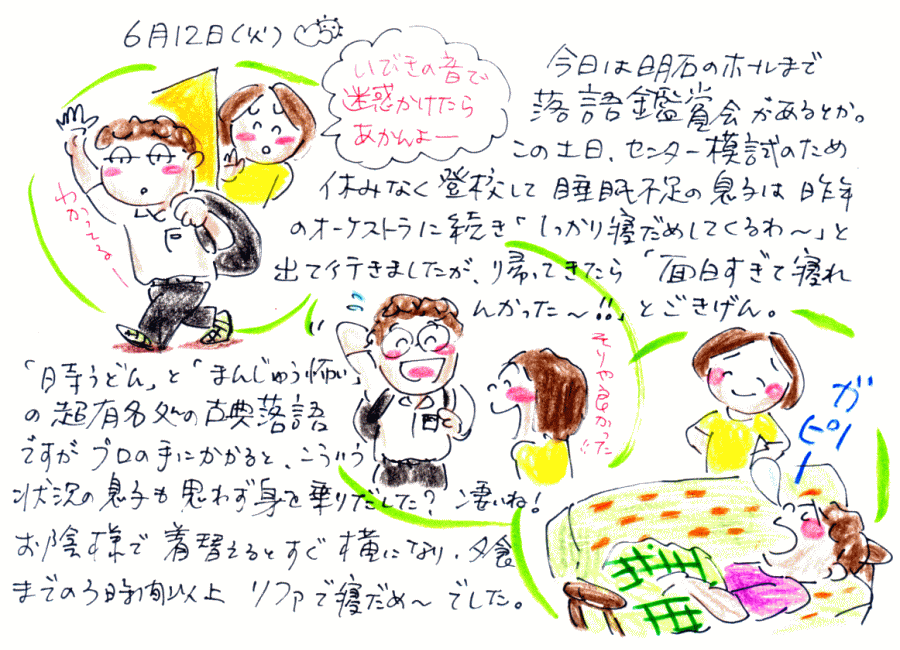 6月12日(火)
いびきの音で
迷惑かけたら
あかんよー
わかってるー
今日は明石のホールまで
落語鑑賞会があるとか。
この土日、センター模試のため
休みなく登校して睡眠不足の息子は昨年
のオーケストラに続き「しっかり寝だめしてくるわ〜」と
出て行きましたが、帰ってきたら「面白すぎて寝れ
んかった〜!!」とごきげん。
そりゃ良かった
「時うどん」と「まんじゅう怖い」
の超有名処の古典落語
ですがプロの手にかかると、こういう
状況の息子も思わず身を乗りだした?凄いね!
お陰様で着替えるとすぐ横になり、夕食
までの3時間以上ソファで寝だめ〜でした。
ガピー